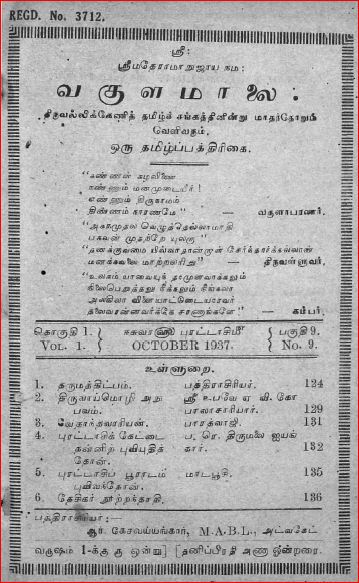 REGD. No. 3712.
ஸ்ரீ:
ஸ்ரீமதேராமாநுஜாய நம:
வகுளமாலை:
திருவல்லிக்கேணித் தமிழ்ச் சங்கத்தினின்று மாதந்தோறும்
வெளிவரும்.
ஒரு தமிழ்ப்பத்திரிகை.
"கண்ணன் கழலிணை
நண்ணும் மனமுடையீர்!
எண்ணும் திருநாமம்
திண்ணம் நாரணமே" — வகுளாபரணர்.
"அகரமுதல வெழுத்தெல்லாமாதி
பகவன் முதற்றே யுலகு"
"தனக்குவமை யில்லாதான்றாள் சேர்ந்தார்க்கல்லால்
மனக்கவலை மாற்றலரிது" — திருவள்ளுவர்.
"உலகம் யாவையுந் தாமுளவாக்கலும்
நிலைபெறுத்தலு நீக்கலும் நீங்கலா
அலகிலா விளையாட்டுடையாரவர்
தலைவரன்னவர்க்கே சரணாங்களே" — கம்பர்.
தொகுதி 1. ஈசுவர௵ புரட்டாசிமீ பகுதி 9.
VOL. 1. OCTOBER 1937. No. 9.
உள்ளுறை.
1. தருமத்திட்பம். பத்திராதிபர். 124
2. திருவாய்மொழி அநு ஸ்ரீ உபவே ஏ வி. கோ
பவம். பாலாசாரியார். 129
3. வேதாந்தவாரியன். பாரத்வாஜி. 131
4. புரட்டாசிக் கேட்டை ப. ரெ. திருமலை ஐயங்
தன்னிற் புவியுதித் கார். 132
தோன்.
5. புரட்டாசிப் பூராடம் மாடபூசி. 135
புவிவந்தோன்.
6 தேசிகர் நூற்றந்தாதி. 136
பத்திராதிபர்:
ஆர். கேசவய்யங்கார், M.A.B.L., அட்வகேட்
வருஷம் 1-க்கு ரூ ஒன்று] [தனிப்பிரதி அணா ஒன்றரை.